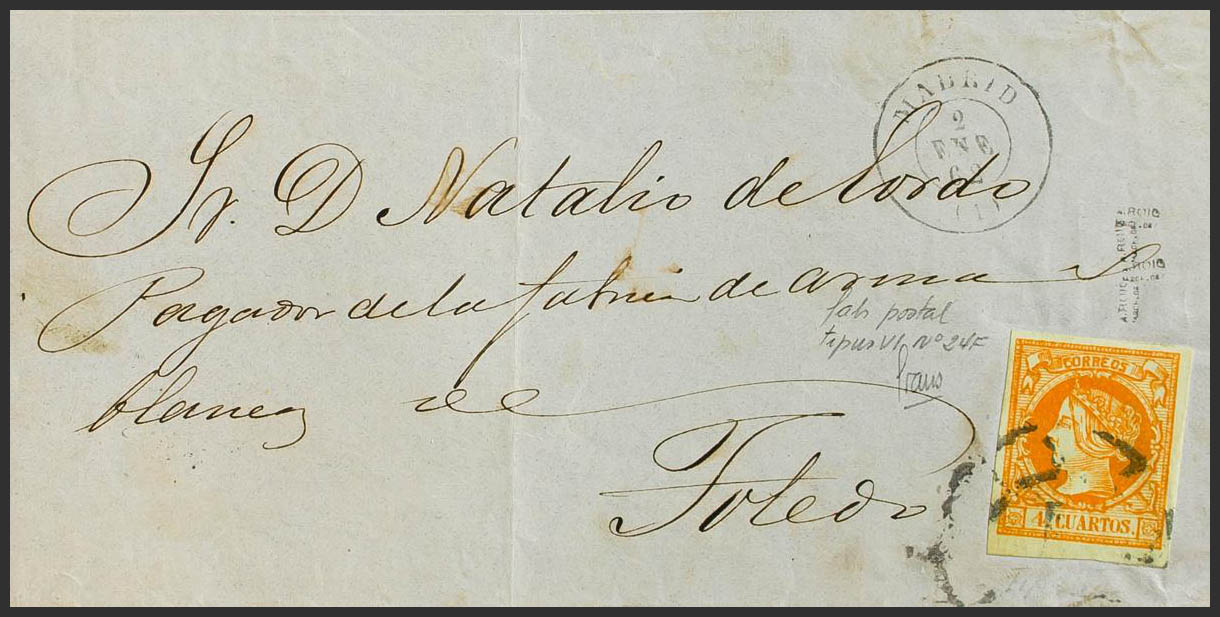 MADRID
2
ENE
62
(1)
Sr. D Natalio de Cordo
Pagador de la fabrica de armas
blancas de
Toledo
fals postal
tipus VI Nº 24F
Graus
A. ROIG
A. ROIG
CORREOS
4 CUARTOS.